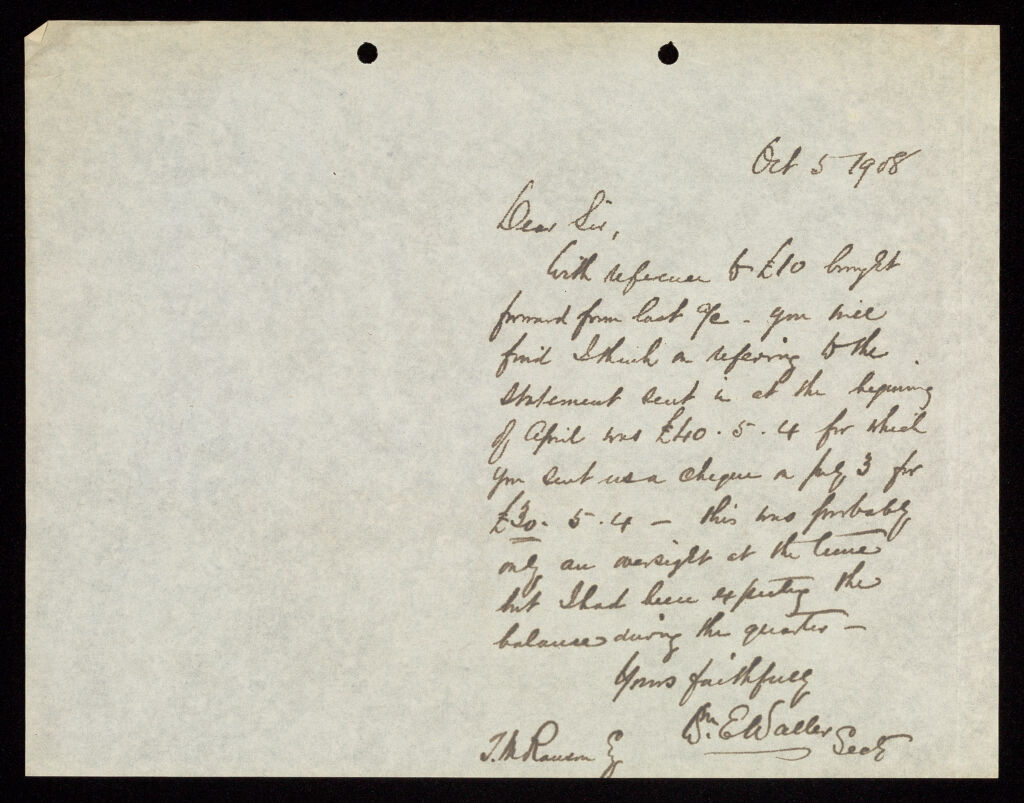 Oct 5 1908
Dear Sir,
With reference to £10 brought
forward from last a/c - you will
find I think on refering to the
statement sent in at the begining
of April was £40. 5. 4 for which
you sent us a cheque on July 3 for
£30. 5. 4 - this was probably
only an oversight at the time
but I had been expecting the
balance during the quarter -
Yours faithfully
Wm. E Waller Secty
T. M Rawson Esq